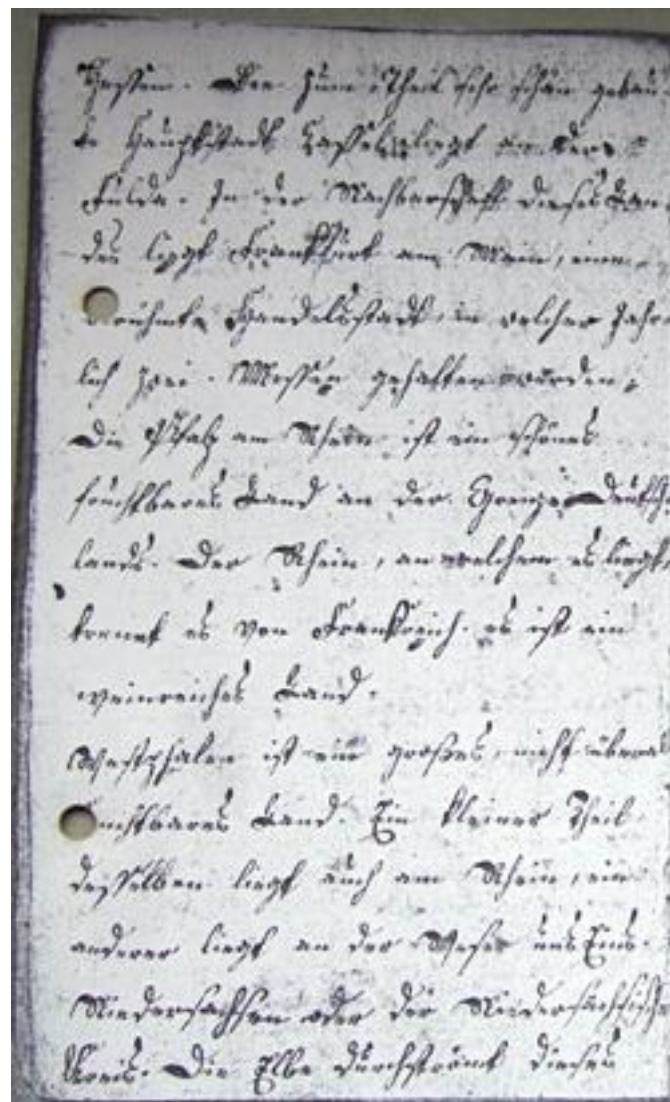 Hessen. Die zum Theil sehr schön gebau
te Hauptstadt Cassel liegt an der
Fulda. In der Nachbarschaft dieses Lan
des liegt Frankfurt am Main, eine
berühmte Handelsstadt, in welcher Jähr
lich zwei Messen gehalten werden.
Die Pfalz am Rhein ist ein schönes
fruchtbares Land an der Grenze Deutsch
lands. Der Rhein, an welchem es liegt,
trennt es von Frankreich. es ist ein
weinreiches Land.
Westphalen ist ein großes, nicht überal
fruchtbares Land. Ein kleiner Theil
desselben liegt auch am Rhein, ein
anderer liegt an der Weser und Ems.
Niedersachsen oder der Niedersächsische
Kreis. Die Elbe durchströmt dieses